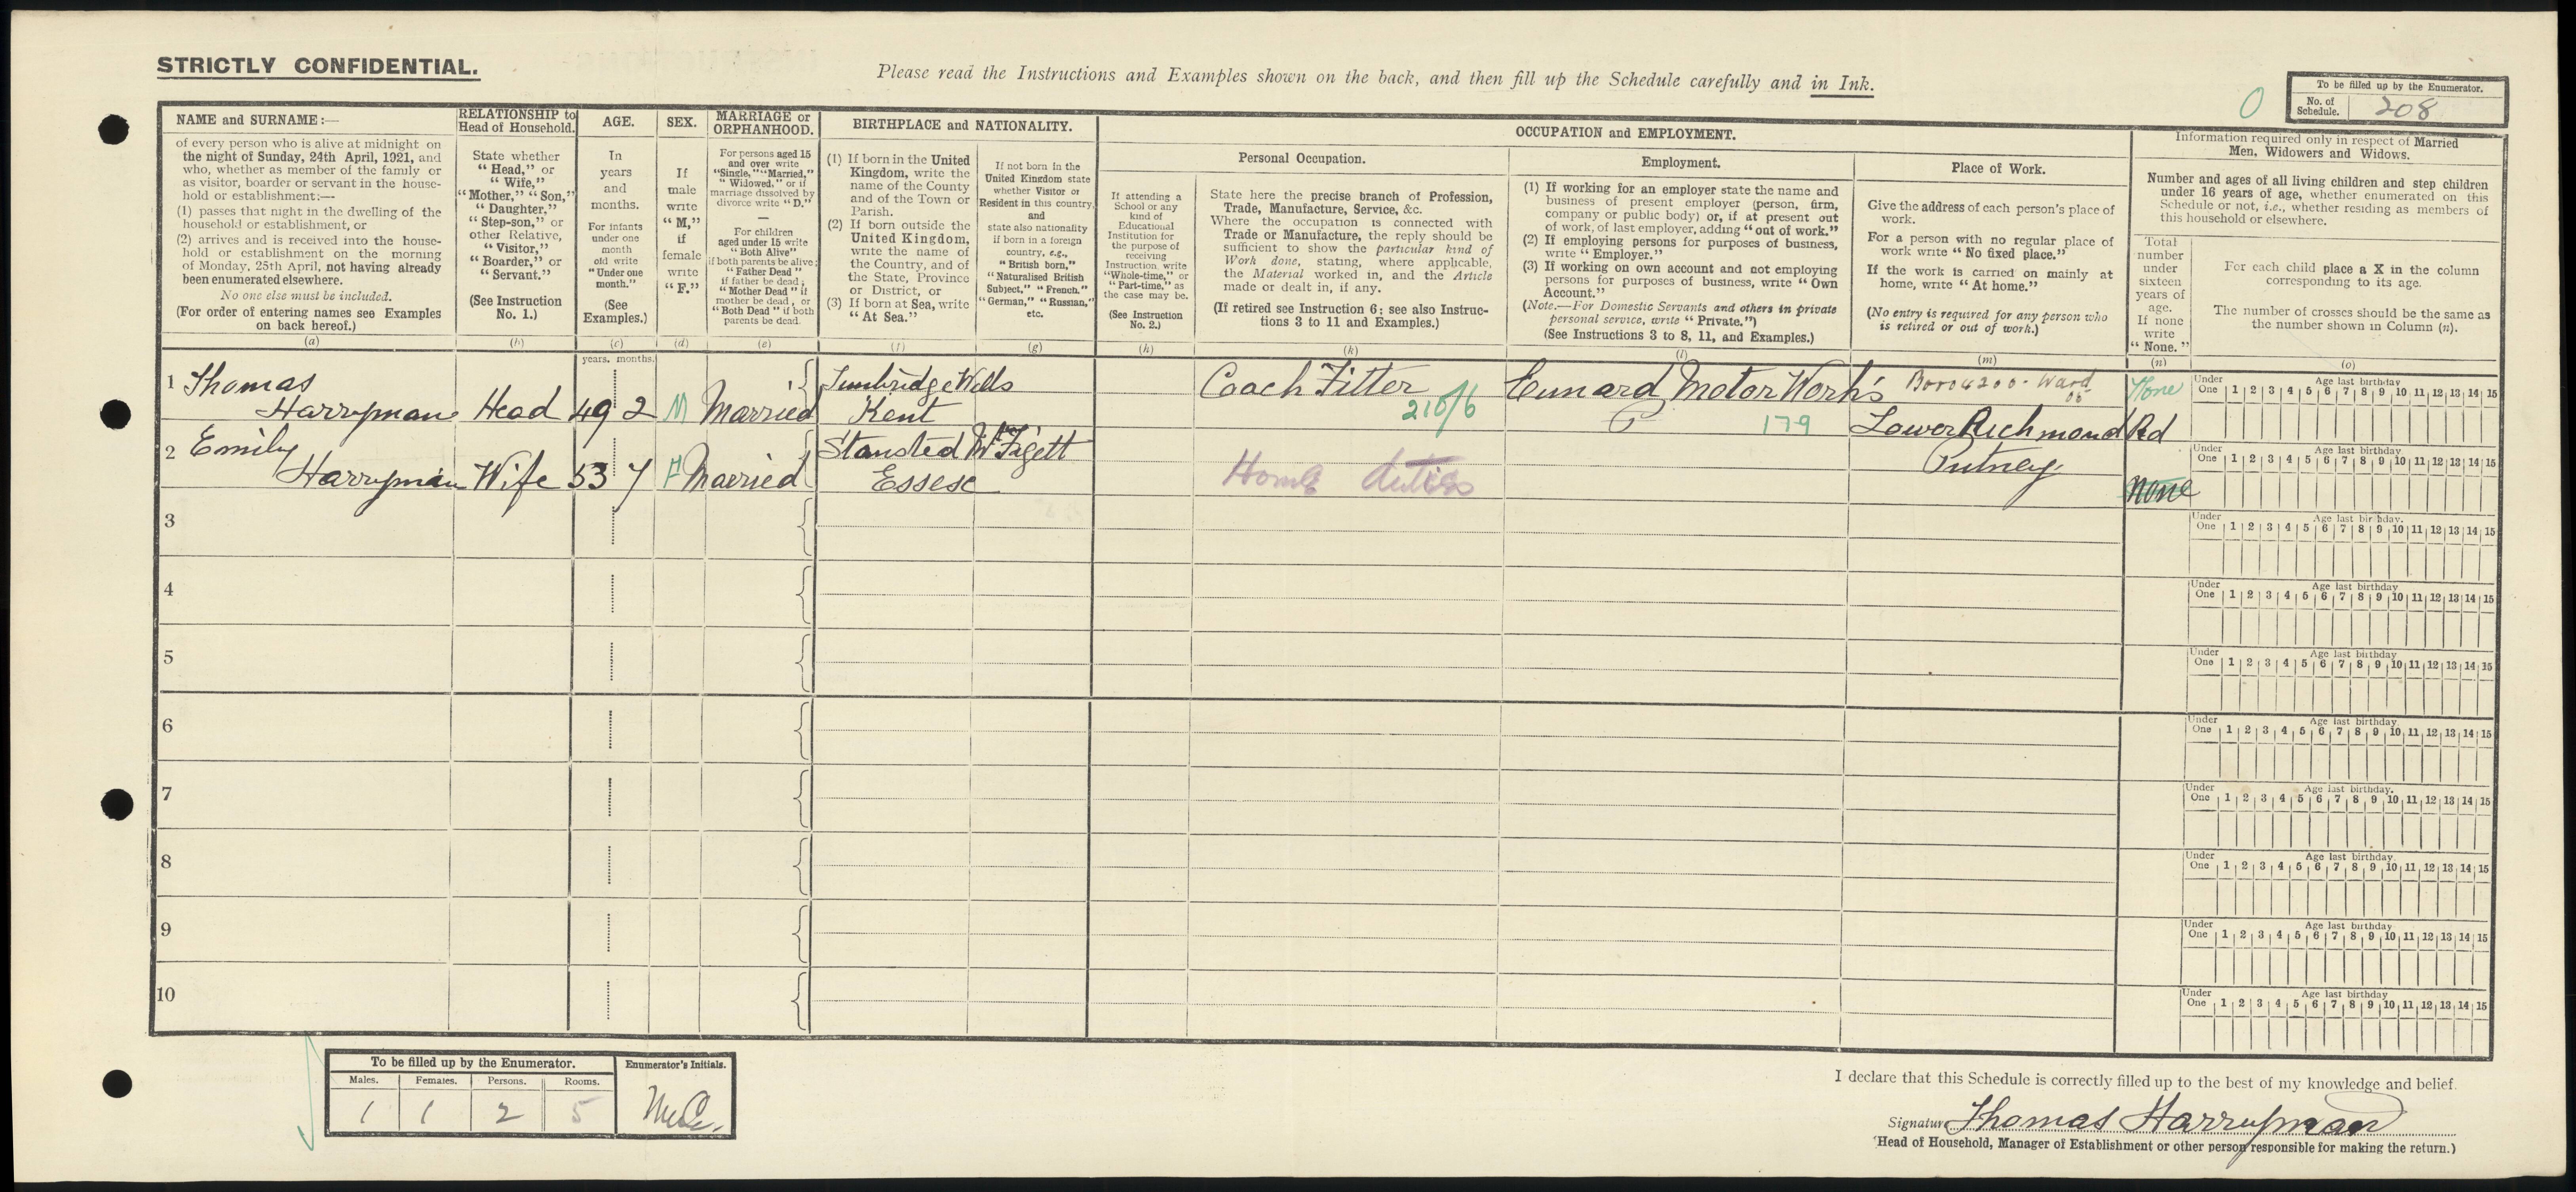 STRICTLY CONFIDENTIAL.
Please read the Instructions and Examples shown on the back, and then fill up the Schedule carefully and in Ink.
To be filled up by the Enumerator.
No. of Schedule. 208
0
NAME and SURNAME:—
of every person who is alive at midnight on
the night of Sunday, 24th April, 1921, and
who, whether as member of the family or
as visitor, boarder or servant in the house-
hold or establishment:—
(1) passes that night in the dwelling of the
household or establishment, or
(2) arrives and is received into the house-
hold or establishment on the morning
of Monday, 25th April, not having already
been enumerated elsewhere.
No one else must be included.
(For order of entering names see Examples
on back hereof.)
(a)
RELATIONSHIP to
Head of Household.
State whether
"Head," or
"Wife,"
"Mother," "Son,"
"Daughter,"
"Step-son," or
other Relative,
"Visitor,"
"Boarder," or
"Servant."
(See Instruction
No. 1.)
(b)
AGE.
In
years
and
months.
For infants
under one
month
old write
"Under one
month."
(See
Examples.)
(c)
years. months.
SEX.
If
male
write
"M,"
if
female
write
"F."
(d)
MARRIAGE or
ORPHANHOOD.
For persons aged 15
and over write
"Single," "Married,"
"Widowed," or if
marriage dissolved by
divorce write "D."
—
For children
aged under 15 write
"Both Alive"
if both parents be alive;
"Father Dead"
if father be dead;
"Mother Dead" if
mother be dead; or
"Both Dead" if both
parents be dead.
(e)
BIRTHPLACE and NATIONALITY.
(1) If born in the United
Kingdom, write the
name of the County
and of the Town or
Parish.
(2) If born outside the
United Kingdom,
write the name of
the Country, and of
the State, Province
or District, or
(3) If born at Sea, write
"At Sea."
(f)
If not born in the
United Kingdom state
whether Visitor or
Resident in this country,
and
state also nationality
if born in a foreign
country, e.g.,
"British born,"
"Naturalised British
Subject," "French,"
"German," "Russian,"
etc.
(g)
OCCUPATION and EMPLOYMENT.
Personal Occupation.
If attending a
School or any
kind of
Educational
Institution for
the purpose of
receiving
Instruction, write
"Whole-time," or
"Part-time," as
the case may be.
(See Instruction
No. 2.)
(h)
State here the precise branch of Profession,
Trade, Manufacture, Service, &c.
Where the occupation is connected with
Trade or Manufacture, the reply should be
sufficient to show the particular kind of
Work done, stating, where applicable,
the Material worked in, and the Article
made or dealt in, if any.
(If retired see Instruction 6; see also Instruc-
tions 3 to 11 and Examples.)
(k)
Employment.
(1) If working for an employer state the name and
business of present employer (person, firm,
company or public body) or, if at present out
of work, of last employer, adding "out of work."
(2) If employing persons for purposes of business,
write "Employer."
(3) If working on own account and not employing
persons for purposes of business, write "Own
Account."
(Note.—For Domestic Servants and others in private
personal service, write "Private.")
(See Instructions 3 to 8, 11, and Examples.)
(l)
Place of Work.
Give the address of each person's place of
work.
For a person with no regular place of
work write "No fixed place."
If the work is carried on mainly at
home, write "At home."
(No entry is required for any person who
is retired or out of work.)
(m)
Information required only in respect of Married
Men, Widowers and Widows.
Number and ages of all living children and step children
under 16 years of age, whether enumerated on this
Schedule or not, i.e., whether residing as members of
this household or elsewhere.
Total
number
under
sixteen
years of
age.
If none
write
"None."
(n)
For each child place a X in the column
corresponding to its age.
The number of crosses should be the same as
the number shown in Column (n).
(o)
1 Thomas Tunbridge Wells Coach Fitter Cunard Motor Works Boro 4200. Ward 00 None
Harryman Head 49 2 M Married Kent 210/6 179 Lower Richmond Rd
2 Emily Stansted Mt Figett Putney
Harryman Wife 53 7 F Married Essex Home duties None
Under One Age last birthday 1 2 3 4 5 6 7 8 9 10 11 12 13 14 15
Under One Age last birthday 1 2 3 4 5 6 7 8 9 10 11 12 13 14 15
3 Under One Age last birthday. 1 2 3 4 5 6 7 8 9 10 11 12 13 14 15
4 Under One Age last birthday 1 2 3 4 5 6 7 8 9 10 11 12 13 14 15
5 Under One Age last birthday 1 2 3 4 5 6 7 8 9 10 11 12 13 14 15
6 Under One Age last birthday 1 2 3 4 5 6 7 8 9 10 11 12 13 14 15
7 Under One Age last birthday. 1 2 3 4 5 6 7 8 9 10 11 12 13 14 15
8 Under One Age last birthday. 1 2 3 4 5 6 7 8 9 10 11 12 13 14 15
9 Under One Age last birthday 1 2 3 4 5 6 7 8 9 10 11 12 13 14 15
10 Under One Age last birthday 1 2 3 4 5 6 7 8 9 10 11 12 13 14 15
To be filled up by the Enumerator.
Males. Females. Persons. Rooms.
1 1 2 5
Enumerator's Initials.
I declare that this Schedule is correctly filled up to the best of my knowledge and belief.
Signature Thomas Harryman
(Head of Household, Manager of Establishment or other person responsible for making the return.)